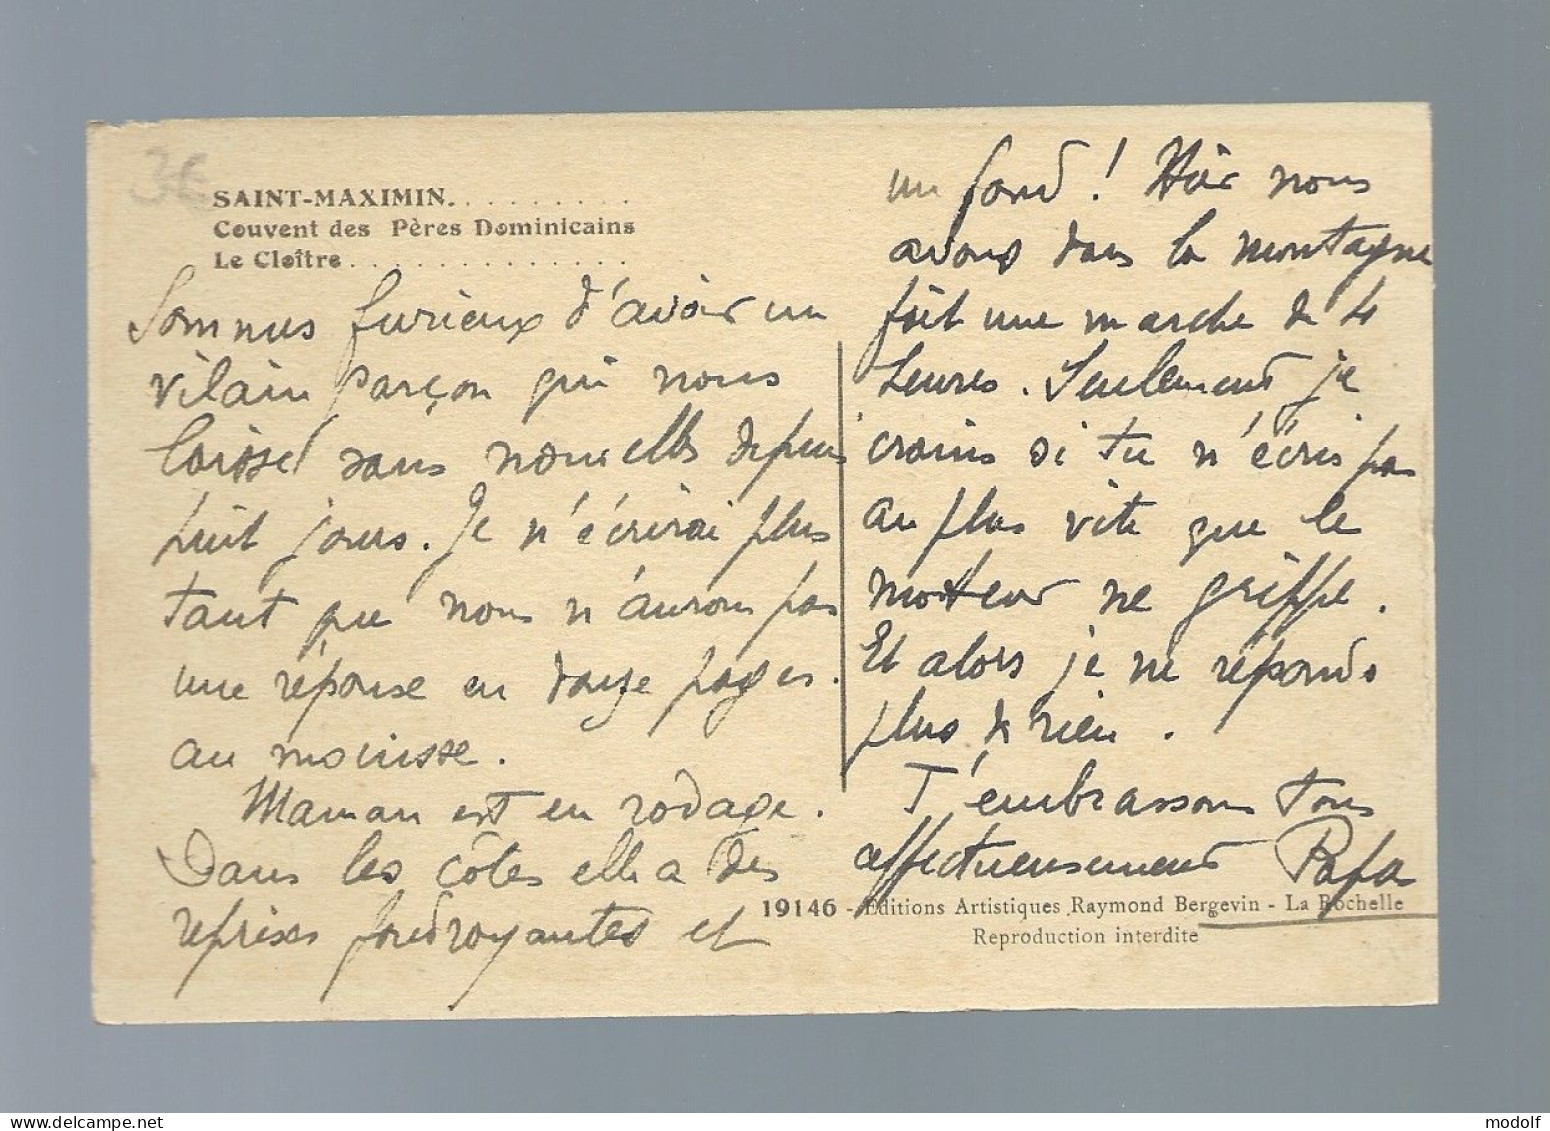 3€
SAINT-MAXIMIN.........
Couvent des Pères Dominicains
Le Cloître.............
Sommes furieux d'avoir un
vilain garçon qui nous
laisse sans nouvelles depuis
huit jours. Je n'écrirai plus
tant que nous n'aurons pas
une réponse en douze pages.
au moinsse.
Maman est en rodage.
Dans les côtes elle a des
reprises foudroyantes et
un fond ! Hier nous
avons dans la montagne
fait une marche de 4
heures. Seulement je
crains si tu n'écris pas
au plus vite que le
moteur ne grippe.
Et alors je ne réponds
plus de rien.
T'embrassons tous
affectueusement Papa
19146 - Editions Artistiques Raymond Bergevin - La Rochelle
Reproduction interdite
modolf